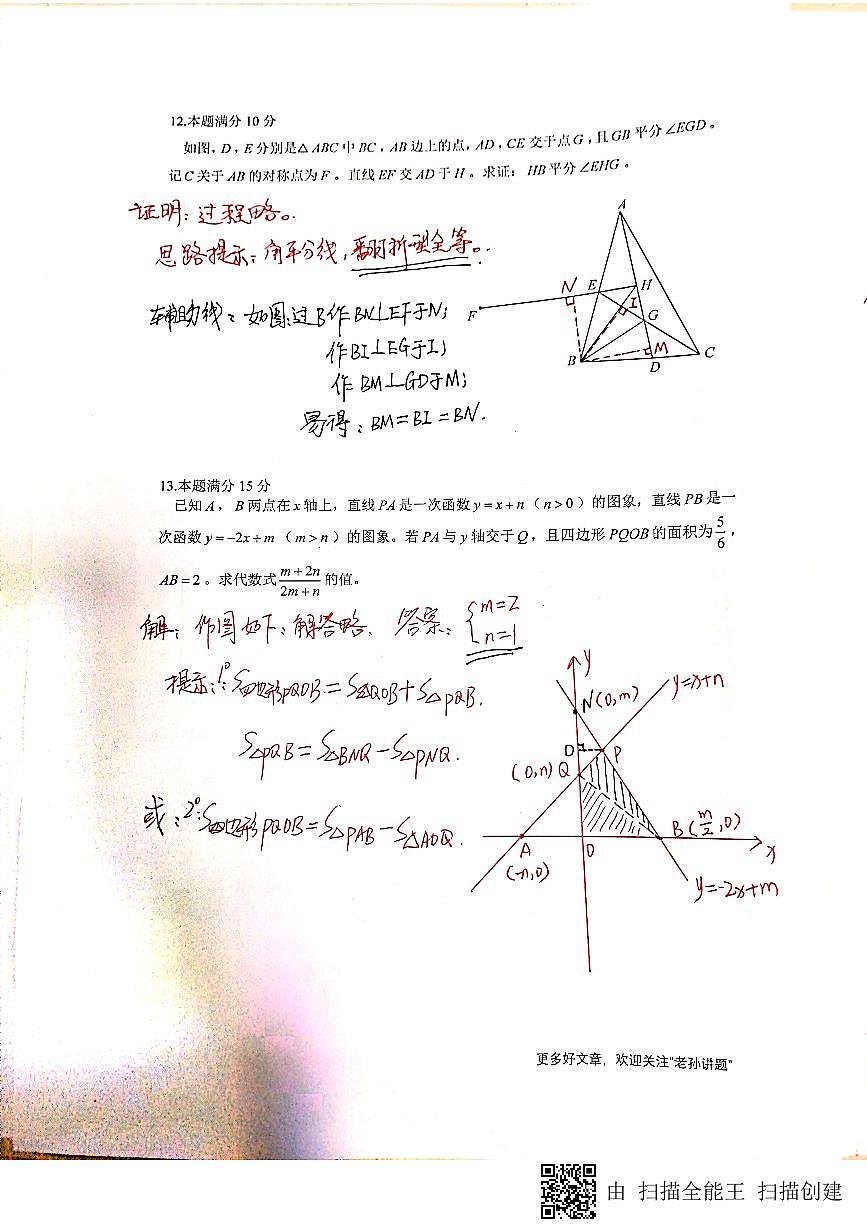 12.本题满分 10 分
如图，D，E 分别是△ABC 中 BC，AB 边上的点，AD，CE 交于点 G，且 GB 平分 ∠EGD。
记 C 关于 AB 的对称点为 F。直线 EF 交 AD 于 H。求证：HB 平分 ∠EHG。
证明：过程略。
思路提示：角平分线，翻折型全等。
辅助线：如图：过B作BN⊥EF于N；
作BI⊥EG于I；
作BM⊥GD于M；
易得：BM=BI=BN.
A
N E H
F I
G
B M C
D
13.本题满分 15 分
已知 A，B 两点在 x 轴上，直线 PA 是一次函数 y=x+n（n>0）的图象，直线 PB 是一
次函数 y=-2x+m（m>n）的图象。若 PA 与 y 轴交于 Q，且四边形 PQOB 的面积为 5/6，
AB=2。求代数式 (m+2n)/(2m+n) 的值。
解：作图如下：解答略. 答案：{m=2
n=1
提示：1° S四边形PQOB=S△QOB+S△PQB.
S△PQB=S△BNQ-S△PNQ.
或：2° S四边形PQOB=S△PAB-S△AOQ.
y
N(0,m) y=x+n
D P
(0,n) Q
B(m/2,0)
A O x
(-n,0)
y=-2x+m
更多好文章，欢迎关注"老孙讲题"
由 扫描全能王 扫描创建